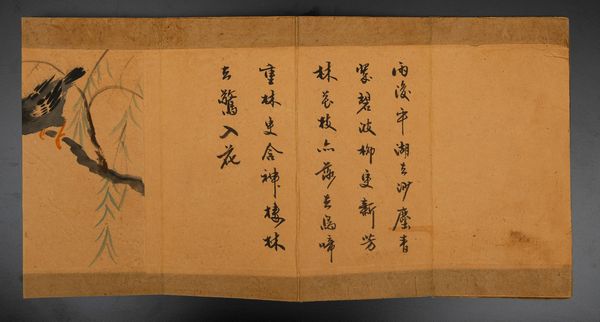 雨後平湖去沙塵青
碧波柳更新芳
林花枝亦去鳥啼
重林更含神棲林
去驚入花